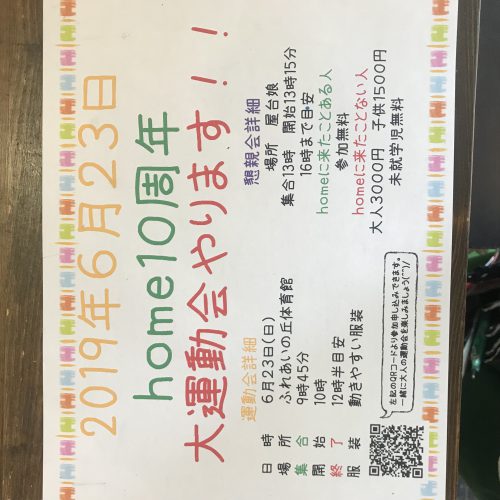 2019年6月23日
home10周年
大運動会やります！！
運動会詳細
日時 6月23日(日)
場所 ふれあいの丘体育館
集合 9時45分
開始 10時
終了 12時半目安
服装 動きやすい服装
懇親会詳細
場所 屋台娘
集合13時 開始13時15分
16時まで目安
homeに来たことある人
参加無料
homeに来たことない人
大人3000円 子供1500円
未就学児無料
左記のQRコードより参加申し込みできます。
一緒に大人の運動会を楽しみましょう(^^)/